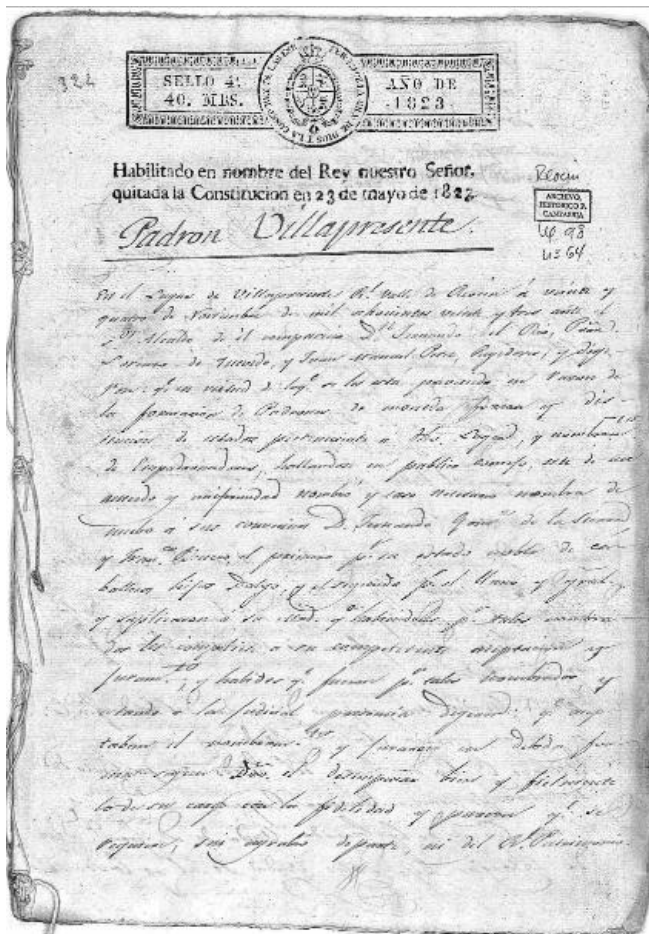 322
SELLO 4º
40. MRS.
AÑO DE
1823.
Habilitado en nombre del Rey nuestro Señor,
quitada la Constitucion en 23 de mayo de 1823.
Reocin
ARCHIVO
HISTORICO P.
CANTABRIA
Lg 98
nº 64
Padron Villapresente.
En el Lugar de Villapresente Rl. Valle de Reocin á veinte y
quatro de Noviembre de mil ochocientos veinte y tres ante el
Sor. Alcalde de él comparecio Dn. Fernando del Rio,
de Quevedo, y Juan Manuel Perez, Regidores, y
ron: qe. en virtud de lo qe. se les esta en razon de
la formacion de Padrones de moneda forera y dis
tincion de estados a dho. Lugar, y nombramto.
de Empadronadores, hallandose en publico concejo, este de un
acuerdo y uniformidad nombró y caso necesario nombra de
nuebo á sus convecinos D. Fernando de la Sierra
y el primero pr. su estado noble de ca
balleros hijos Dalgo, y el segundo pr. el llano y gral.,
y suplicaron á su Mrd. qe. habiendolos pr. tales nombra
dos les compela a su competente aceptacion y
juramto., y habidos qe. fueron pr. tales nombrados y
estando a la judicial presencia digeron: qe. acep
taban el nombramto. y juraron en debida for
ma segun Dro. el desempeñar bien y fielmente
lo de su cargo con la fidelidad y pureza qe. se
requiere, sin agrabio de parte, ni del Rl. Patrimonio